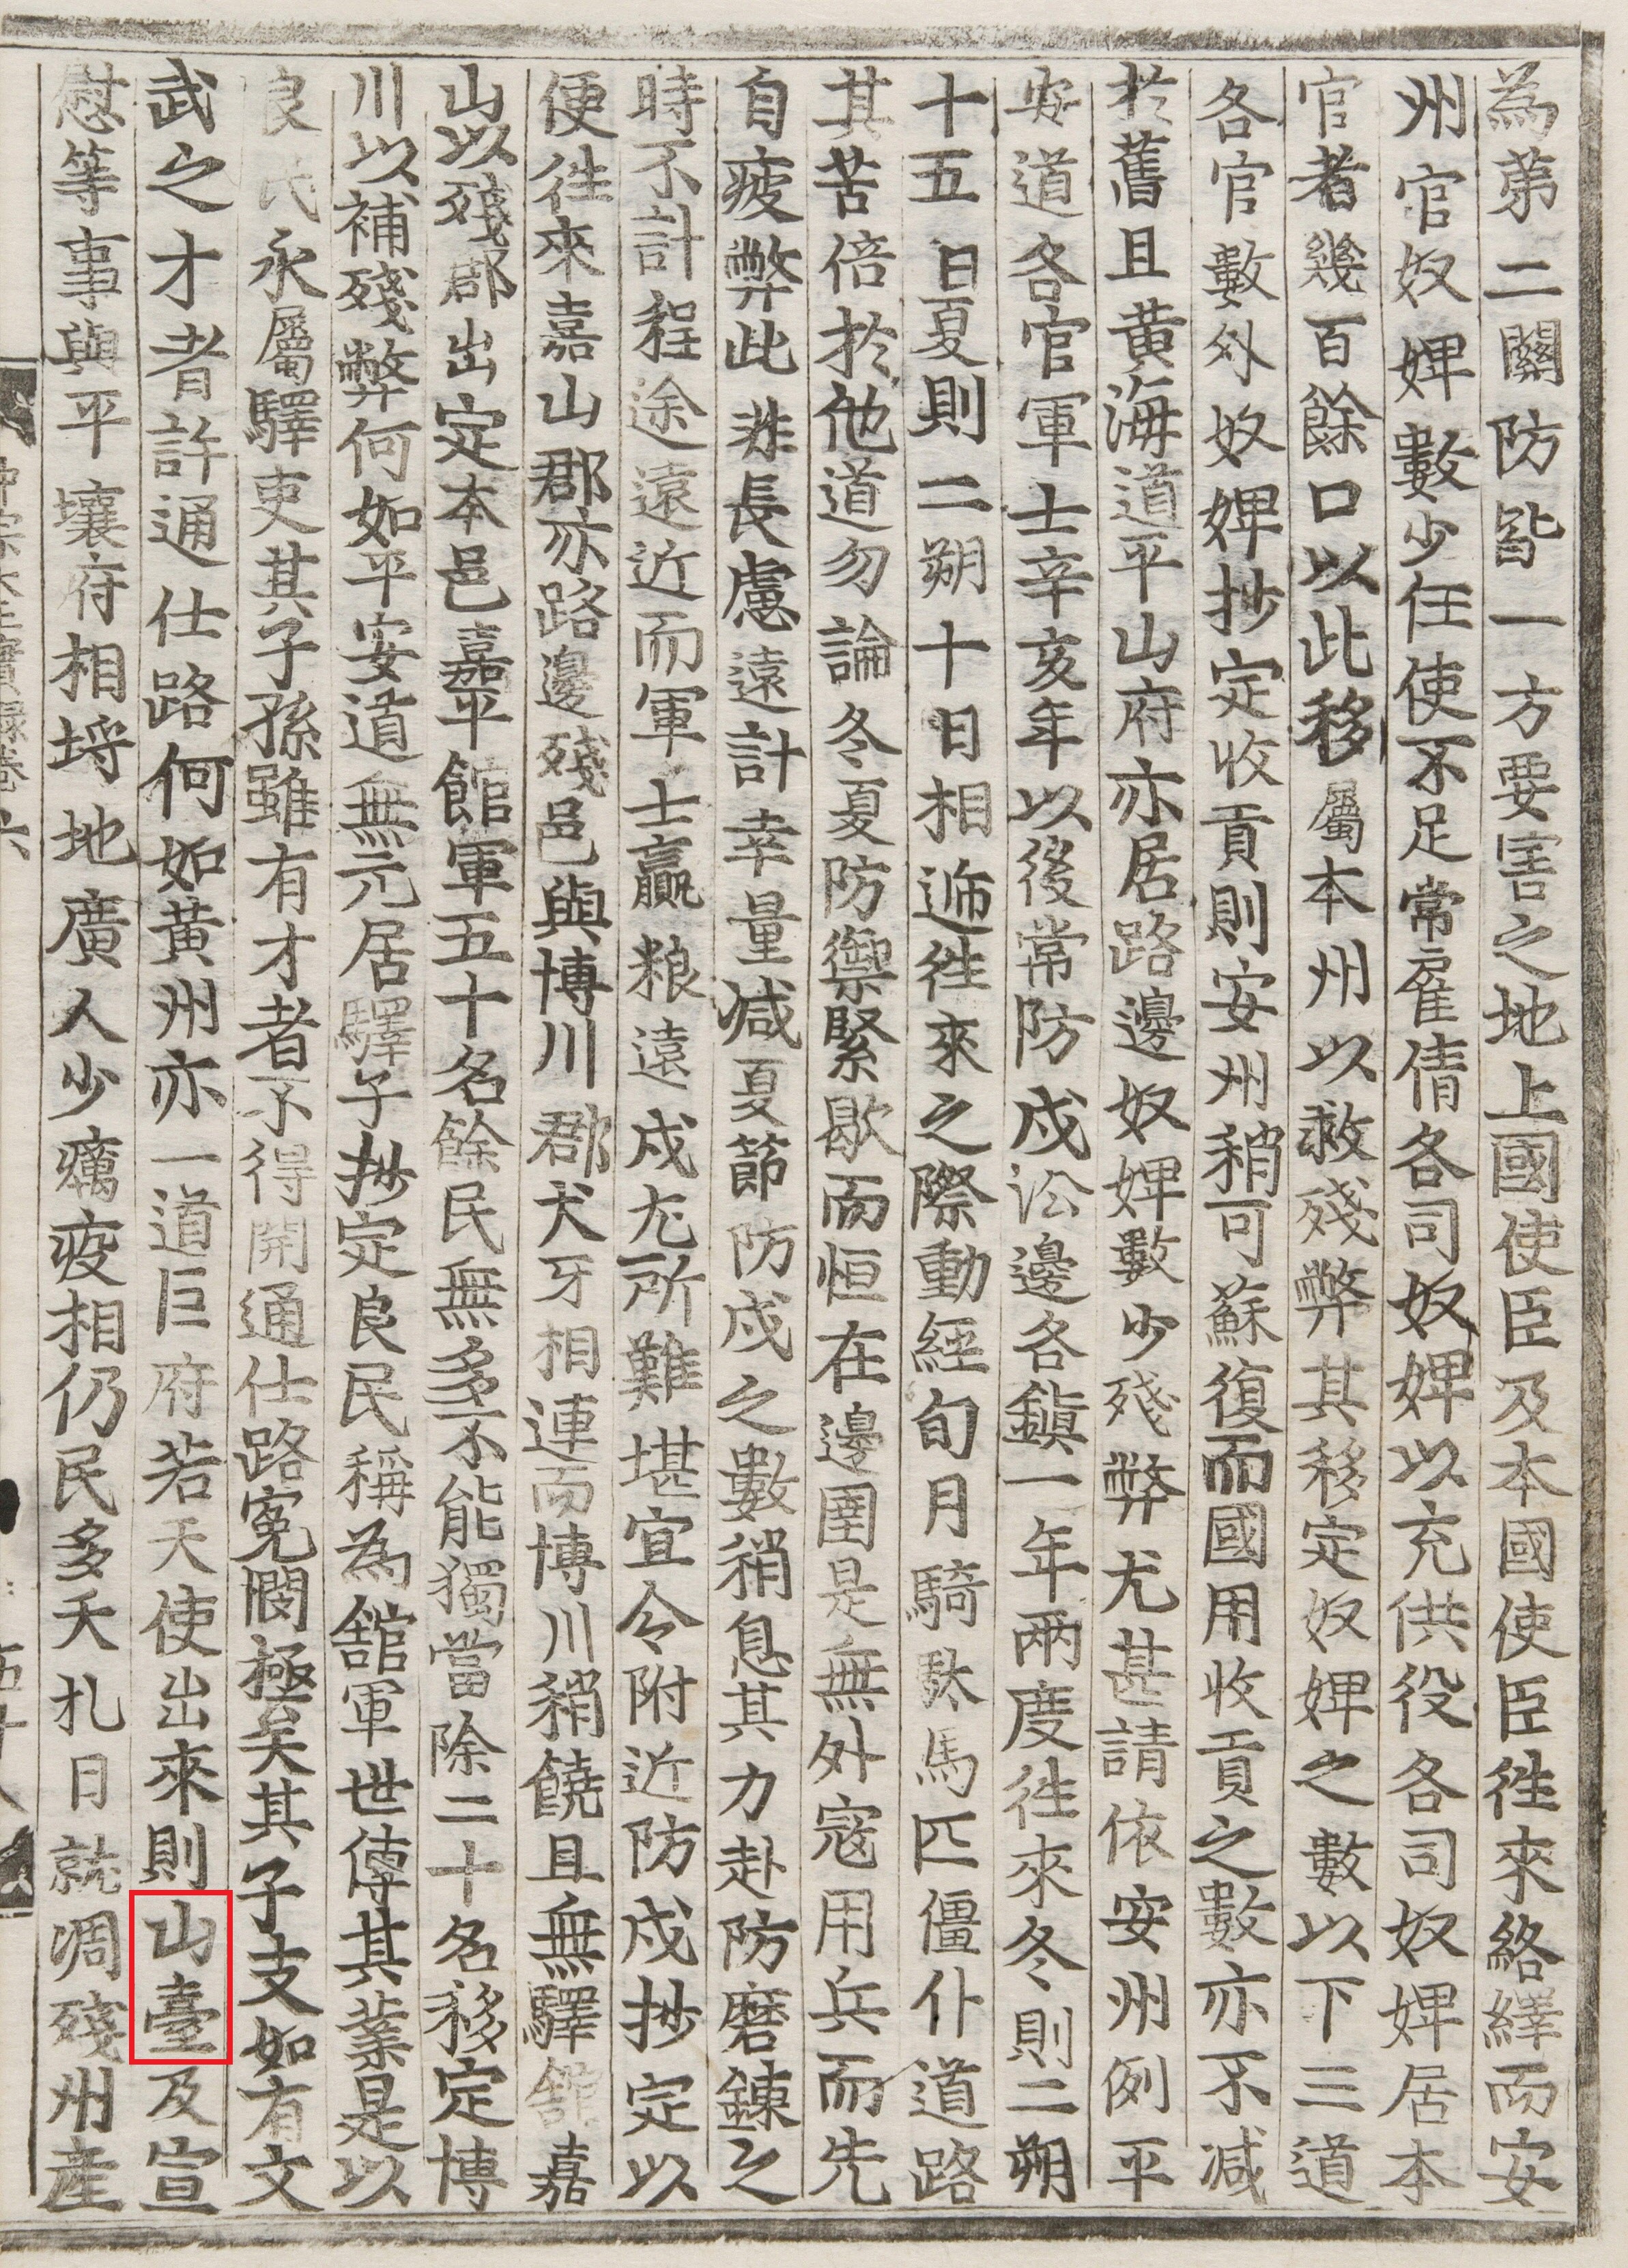 為第二關防皆一方要害之地上國使臣及本國使臣徃來絡繹而安
州官奴婢數少任使不足常雇倩各司奴婢以充供役各司奴婢居本
官者幾百餘口以此移屬本州以救殘弊其移定奴婢之數以下三道
各官數外奴婢抄定收貢則安州稍可蘇復而國用收貢之數亦不減
於舊且黃海道平山府亦居路邊奴婢數少殘弊尤甚請依安州例平
安道各官軍士辛亥年以後常防戍沿邊各鎭一年兩度徃來冬則二朔
十五日夏則二朔十日相遞徃來之際動經旬月騎䭾馬匹僵仆道路
其苦倍於他道勿論冬夏防禦緊歇而恒在邊圉是無外寇用兵而先
自疲弊此非長慮遠計幸量減夏節防戍之數稍息其力赴防磨鍊之
時不計程途遠近而軍士贏粮遠戍尤所難堪宜令附近防戍抄定以
便徃來嘉山郡亦路邊殘邑與博川郡犬牙相連而博川稍饒且無驛館嘉
山以殘郡出定本邑嘉平館軍五十名餘民無多不能獨當除二十名移定博
川以補殘弊何如平安道無元居驛子抄定良民稱為舘軍世傳其業是以
良民永屬驛吏其子孫雖有才者不得開通仕路寃悶極矣其子支如有文
武之才者許通仕路何如黃州亦一道巨府若天使出來則山臺及宣
慰等事與平壤府相埒地廣人少癘疫相仍民多夭札日就凋殘州產